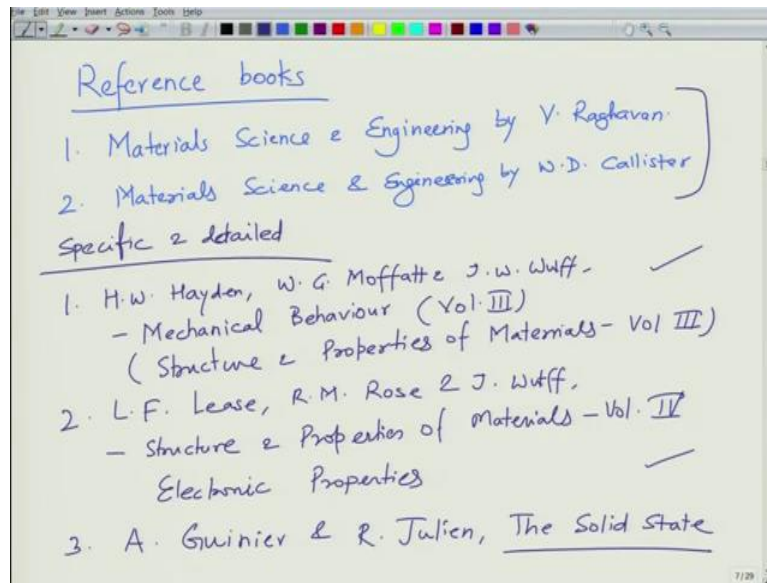 File Edit View Insert Actions Tools Help
Reference books
1. Materials Science & Engineering by V. Raghavan.
2. Materials Science & Engineering by W.D. Callister
Specific & detailed
1. H.W. Hayden, W.G. Moffatt & J.W. Wuff.
- Mechanical Behaviour (Vol. III)
(Structure & Properties of Materials - Vol III)
2. L.F. Lease, R.M. Rose & J. Wutff,
- Structure & Properties of Materials - Vol. IV
Electronic Properties
3. A. Guinier & R. Julien, The Solid State
7/29